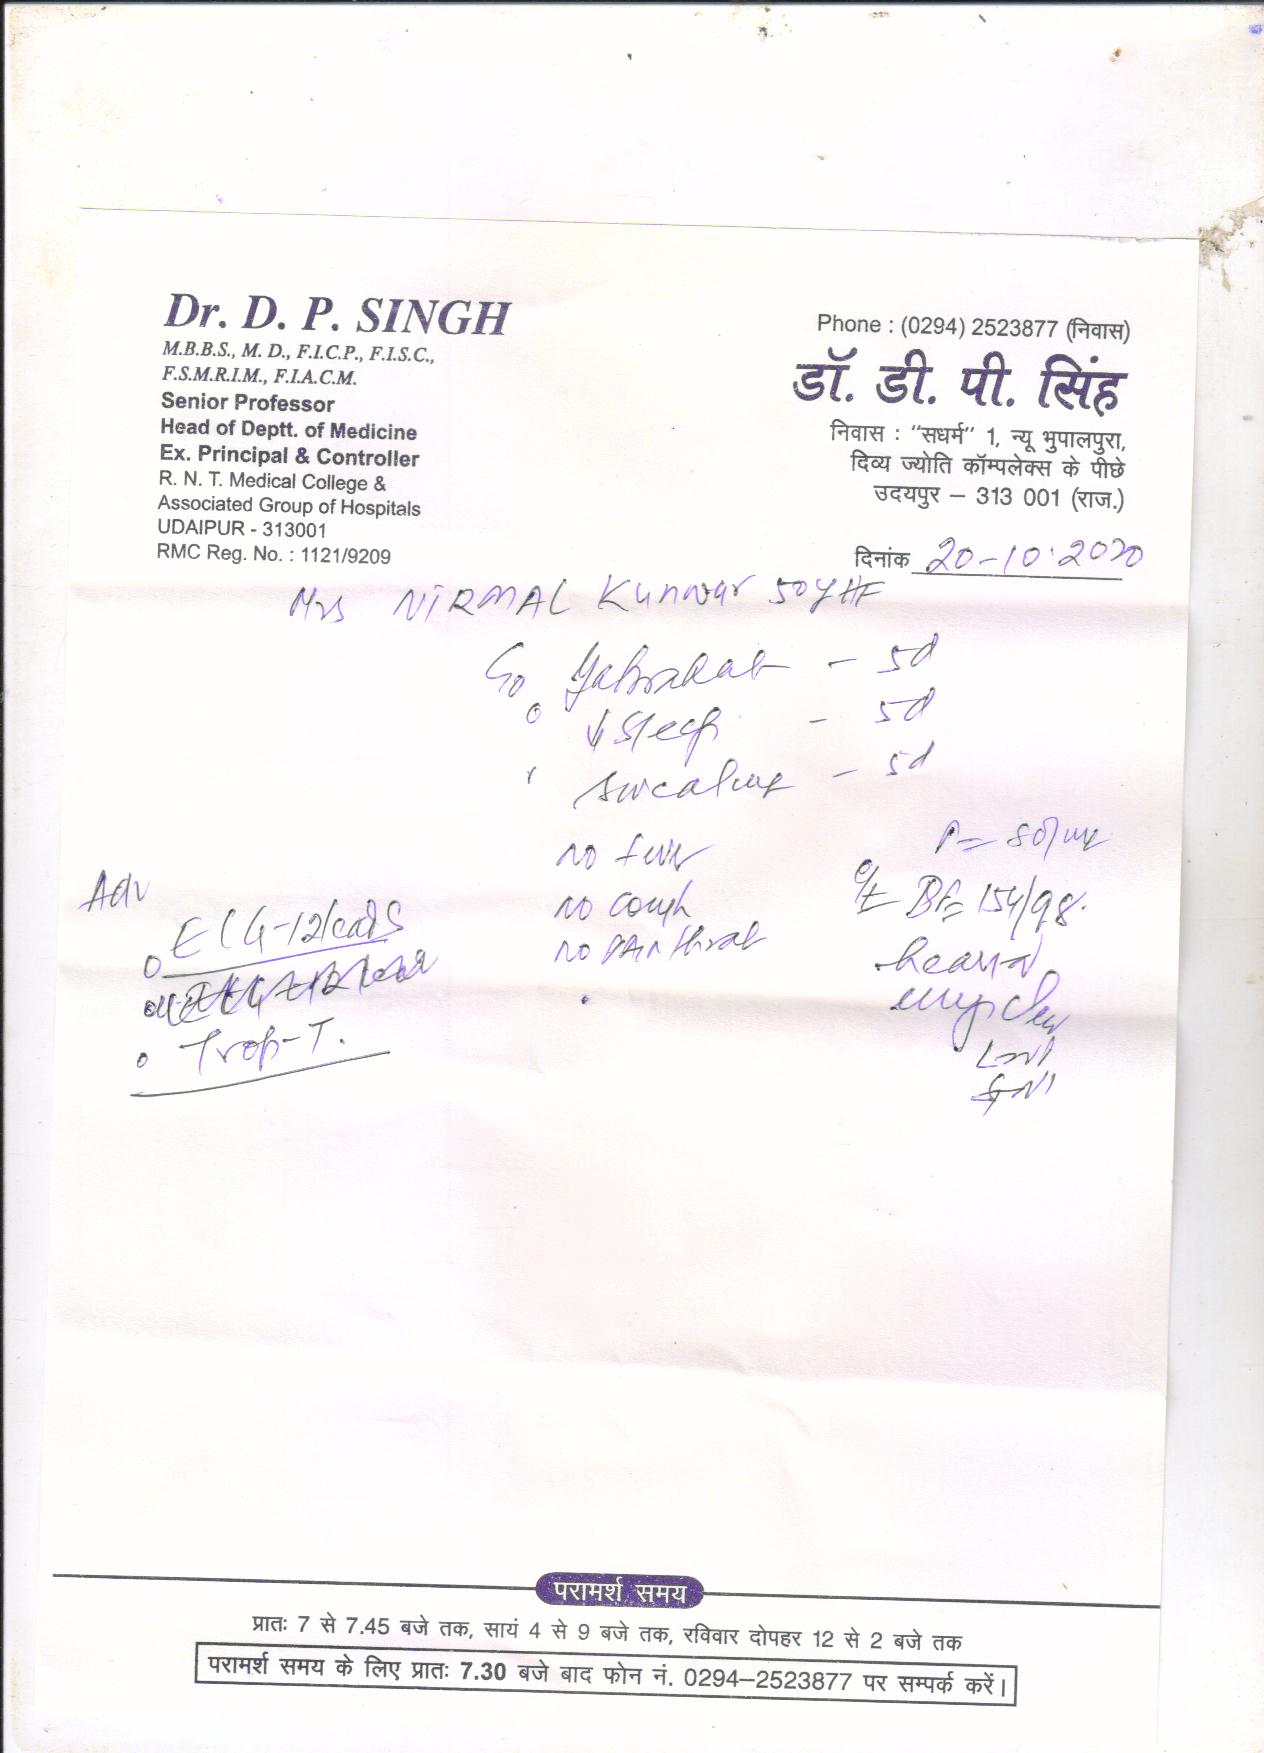 Dr. D. P. SINGH
M.B.B.S., M. D., F.I.C.P., F.I.S.C.,
F.S.M.R.I.M., F.I.A.C.M.
Senior Professor
Head of Deptt. of Medicine
Ex. Principal & Controller
R. N. T. Medical College &
Associated Group of Hospitals
UDAIPUR - 313001
RMC Reg. No. : 1121/9209
Phone : (0294) 2523877 (निवास)
डॉ. डी. पी. सिंह
निवास : “सधर्म” 1, न्यू भुपालपुरा,
दिव्य ज्योति कॉम्पलेक्स के पीछे
उदयपुर – 313 001 (राज.)
दिनांक 20-10-2020
Mrs NIRMAL Kunwar 50y HF
C/o Gabrahat - 5d
↓ Sleep - 5d
Sweating - 5d
no fever
no cough
no pain throat
P= 80/mt
O/E BP= 154/98.
heart
Adv
ECG-12 leads
Trop-T.
परामर्श समय
प्रातः 7 से 7.45 बजे तक, सायं 4 से 9 बजे तक, रविवार दोपहर 12 से 2 बजे तक
परामर्श समय के लिए प्रातः 7.30 बजे बाद फोन नं. 0294–2523877 पर सम्पर्क करें।